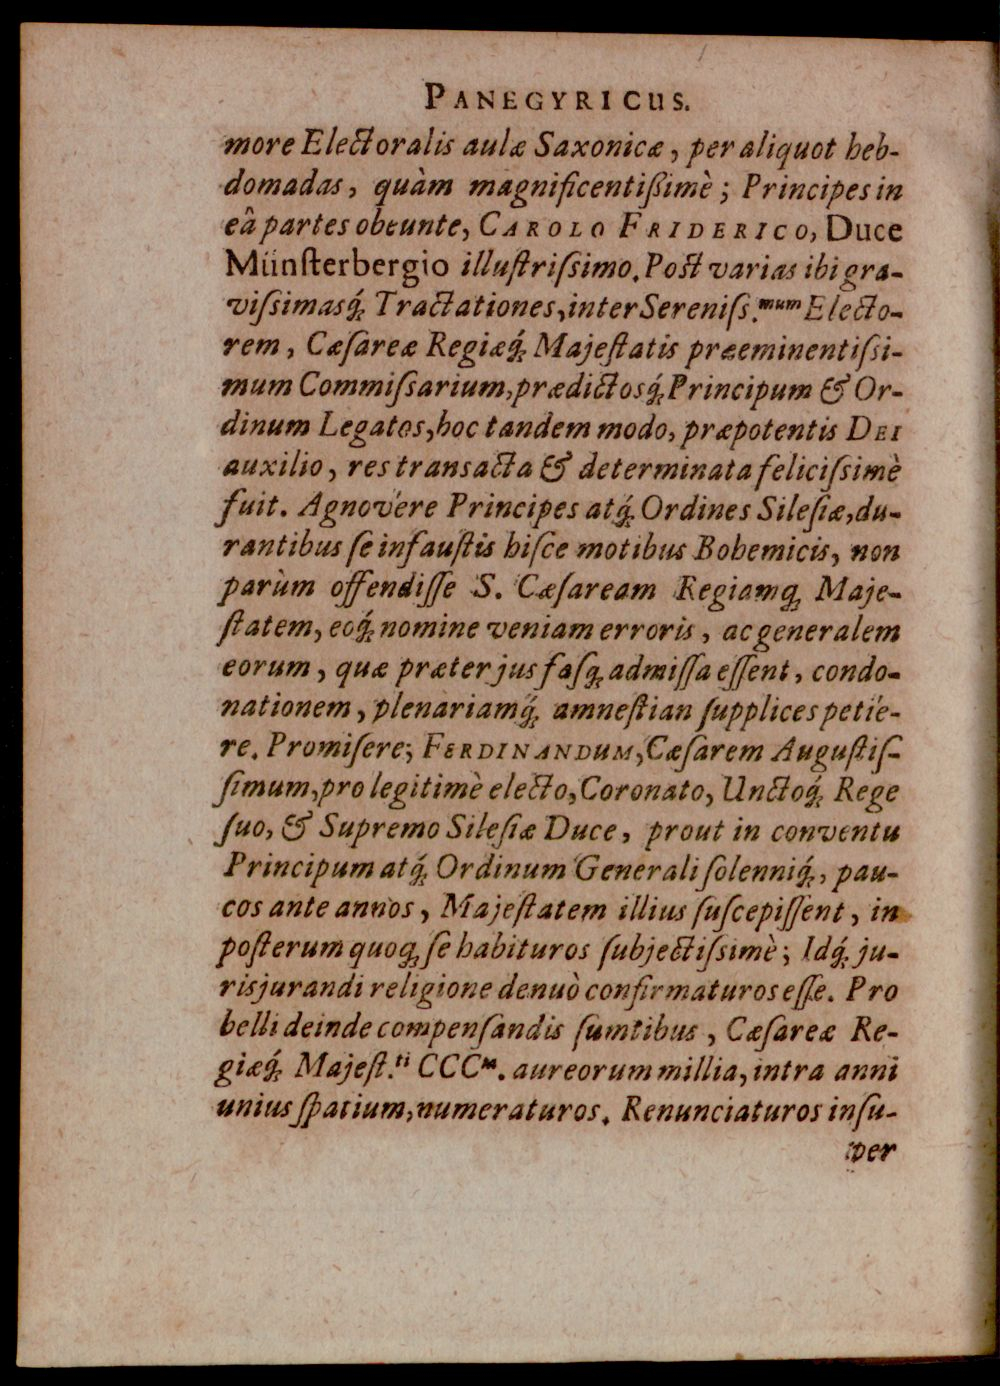 PANEGYRICUS.
more Electoralis aulæ Saxonicæ, per aliquot heb-
domadas, quàm magnificentißimè; Principes in
eâ partes obeunte, CAROLO FRIDERICO, Duce
Münsterbergio illuſtriſsimo. Poſt varias ibi gra-
viſsimasq́; Tractationes, inter Sereniſs.mum Electo-
rem, Cæſareæ Regiæq́; Majeſtatis præeminentiſsi-
mum Commiſsarium, prædictosq́; Principum & Or-
dinum Legatos, hoc tandem modo, præpotentis DEI
auxilio, res transacta & determinata feliciſsimè
fuit. Agnovére Principes atq́; Ordines Sileſiæ, du-
rantibus ſe infauſtis hiſce motibus Bohemicis, non
parùm offendiſſe S. Cæſaream Regiamq; Maje-
ſtatem, eoq́; nomine veniam erroris, ac generalem
eorum, quæ præter jus faſq; admiſſa eſſent, condo-
nationem, plenariamq́; amneſtian ſupplices petie-
re. Promiſere; FERDINANDUM, Cæſarem Auguſtiſ-
ſimum, pro legitimè electo, Coronato, Unctoq́; Rege
ſuo, & Supremo Sileſiæ Duce, prout in conventu
Principum atq́; Ordinum Generali ſolenniq́;, pau-
cos ante annos, Majeſtatem illius ſuſcepiſſent, in
poſterum quoq; ſe habituros ſubjectiſsimè; Idq́; ju-
risjurandi religione denuò confirmaturos eſſe. Pro
belli deinde compenſandis ſumtibus, Cæſareæ Re-
giæq́; Majeſt.ti CCCM. aureorum millia, intra anni
unius ſpatium, numeraturos. Renunciaturos inſu-
per